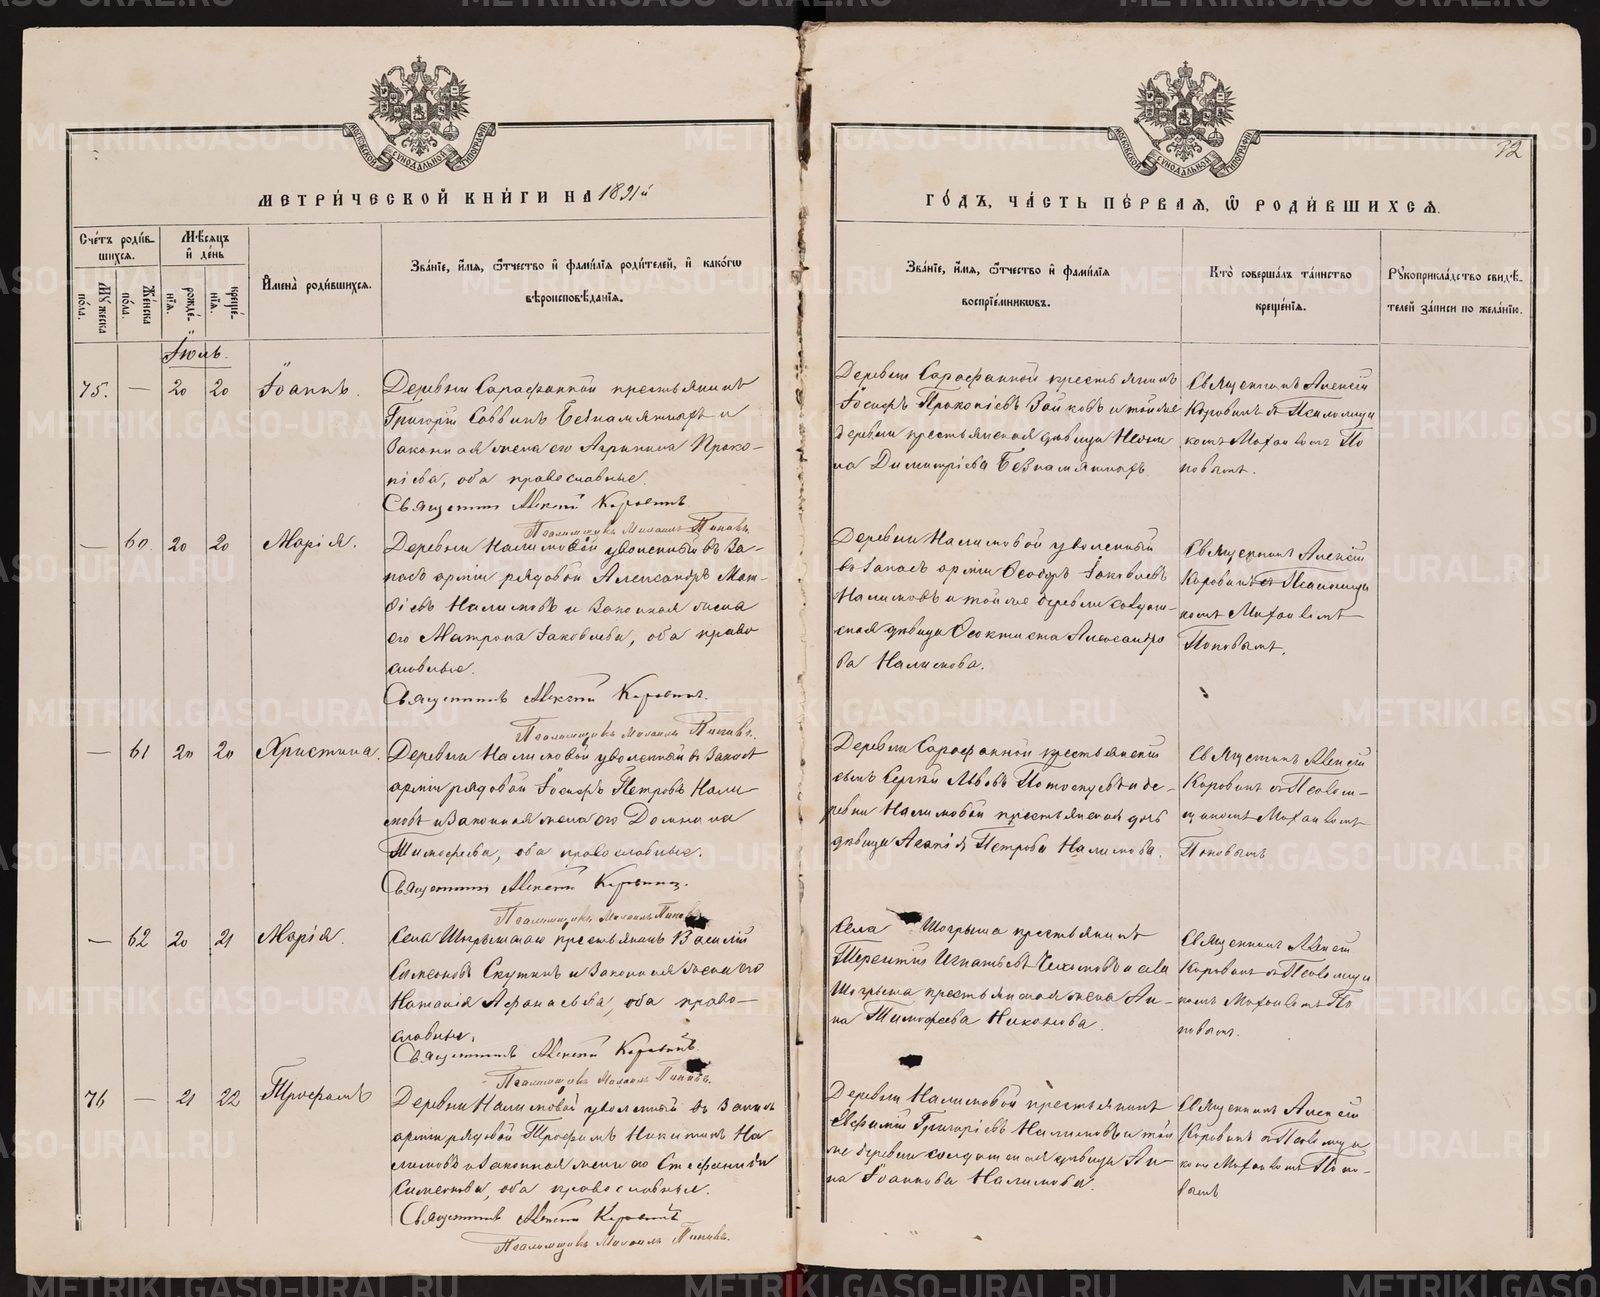 МЕТРИ́ЧЕСКОЙ КНИ́ГИ НА 1891й
Сче́тъ роди́вшихся.
Му́жеска по́ла.
Же́нска по́ла.
Мѣ́сяцъ и҆ де́нь
рожде́нїя.
креще́нїя.
И҆мена̀ роди́вшихся.
Зва́нїе, и҆́мя, ѻ҆́тчество и҆ фами́лїя роди́телей, и҆ како́гѡ вѣроисповѣ́данїя.
Іюль.
75. — 20 20 Іоаннъ.
Деревни Сарафанной крестьянинъ
Григорій Саввинъ Безпамятныхъ и
Законная жена его Агрипина Проко-
піева, оба православные.
Священникъ Алексій Коровинъ
Псаломщикъ Михаилъ Поповъ.
— 60. 20 20 Марія.
Деревни Налимовой уволенный въ За-
пасъ арміи рядовой Александръ Мат-
ѳіевъ Налимовъ и Законная жена
его Матрона Іаковлева, оба право
славные.
Священникъ Алексій Коровинъ.
Псаломщикъ Михаилъ Поповъ.
— 61 20 20 Христина.
Деревни Налимовой уволенный въ Запасъ
арміи рядовой Іосифъ Петровъ Нали-
мовъ и Законная жена его Домна
Тимофеева, оба православные.
Священникъ Алексій Коровинъ.
Псаломщикъ Михаилъ Поповъ.
— 62 20 21 Марія.
Села крестьянинъ Василій
Симеоновъ Скуткинъ и Законная жена его
Наталія Афанасьева, оба право-
славные.
Священникъ Алексій Коровинъ.
Псаломщикъ Михаилъ Поповъ.
76 — 21 22 Трофимъ
Деревни Налимовой уволенный въ Запасъ
арміи рядовой Трофимъ Никитинъ На
лимовъ и Законная жена его Стефанида
Симеонова, оба православные.
Священникъ Алексій Коровинъ
Псаломщикъ Михаилъ Поповъ.
72
ГО́ДЪ, ЧА́СТЬ ПЕ́РВАЯ, Ѡ҆ РОДИ́ВШИХСЯ.
Зва́нїе, и҆́мя, ѻ҆́тчество и҆ фами́лїя воспрїе́мникѡвъ.
Кто̀ соверша́лъ та́инство креще́нїя.
Рꙋкоприкла́дство свидѣ́телей за́писи по жела́нїю.
Деревни Сарафанной крестьянинъ
Іосифъ Прокопіевъ Зайковъ и той же
деревни крестьянская дѣвица
на Димитріева Безпамятныхъ
Священникъ Алексій
Коровинъ съ Псаломщи
комъ Михаиломъ По
повымъ.
Деревни Налимовой уволенный
въ Запасъ арміи Ѳеодоръ Іаковлевъ
Налимовъ и той же деревни солдат-
ская дѣвица Ѳеоктиста Александро
ва Налимова.
Священникъ Алексій
Коровинъ съ Псаломщи
комъ Михаиломъ
Поповымъ.
Деревни Сарафанной крестьянскій
сынъ Сергій Львовъ Потоскуевъ и де-
ревни Налимовой крестьянская дочь
дѣвица Петрова Налимова.
Священникъ Алексій
Коровинъ съ Псалом-
щикомъ Михаиломъ
Поповымъ
Села Шогрыша крестьянинъ
Терентій Игнатьевъ и села
Шогрыша крестьянская жена Ан-
на Тимофеева Никонова.
Священникъ Алексій
Коровинъ съ Псаломщи
комъ Михаиломъ По
повымъ.
Деревни Налимовой крестьянинъ
Евфимій Григоріевъ Налимовъ и той
же деревни солдатская дѣвица Ан-
на Іоаннова Налимова.
Священникъ Алексій
Коровинъ съ Псаломщи
комъ Михаиломъ Попо-
вымъ
METRIKI.GASO-URAL.RU